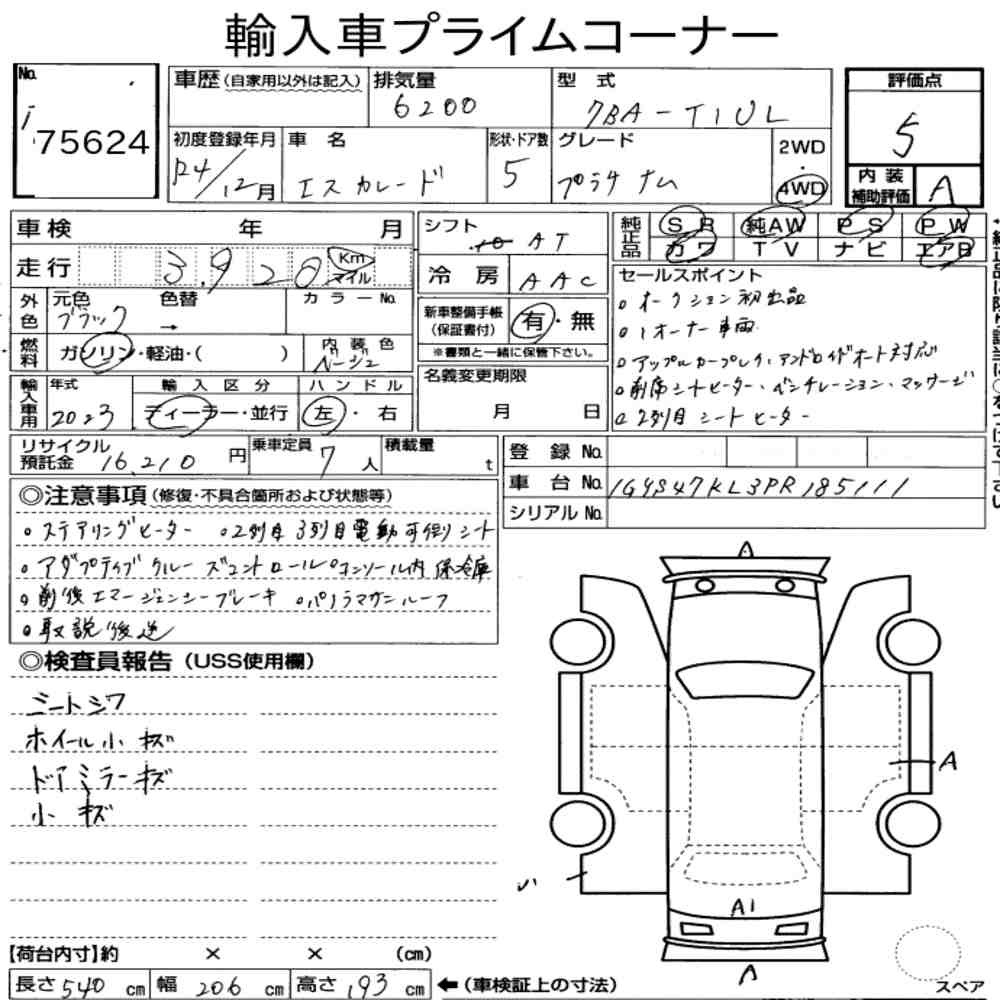 輸入車プライムコーナー
No. 75624
車歴 (自家用以外は記入) 排気量 6200 型式 7BA-T1UL 評価点 5
初度登録年月 R4/12月 車名 エスカレード 形状・ドア数 5 グレード プラチナム 2WD・4WD 内装補助評価 A
車検 年 月 シフト AT 純正品 SR 純AW PS PW
走行 3.920 Km マイル 冷房 AAC カワ TV ナビ エアB
外色 元色 ブラック 色替 → カラーNo. 新車整備手帳(保証書付) 有・無
※書類と一緒に保管下さい。
燃料 ガソリン・軽油・( ) 内装色 ベージュ
輸入車用 年式 2023 輸入区分 ディーラー・並行 ハンドル 左・右 名義変更期限 月 日
セールスポイント
。オークション初出品
。1オーナー車両
。アップルカープレイ、アンドロイドオート対応
。前席シートヒーター、ベンチレーション、マッサージ
。2列目シートヒーター
リサイクル預託金 16,210円 乗車定員 7人 積載量 t
登録No.
車台No. 1GYS47KL3PR185111
シリアルNo.
◎注意事項(修復・不具合箇所および状態等)
。ステアリングヒーター 。2列目3列目電動可倒シート
。アダプティブクルーズコントロール。コンソール内保冷庫
。前後エマージェンシーブレーキ 。パノラマサンルーフ
。取説後送
◎検査員報告(USS使用欄)
シートシワ
ホイール小キズ
ドアミラーキズ
小キズ
A
A
A1
A
スペア
【荷台内寸】約 × × (cm)
長さ 540 cm 幅 206 cm 高さ 193 cm ←(車検証上の寸法)